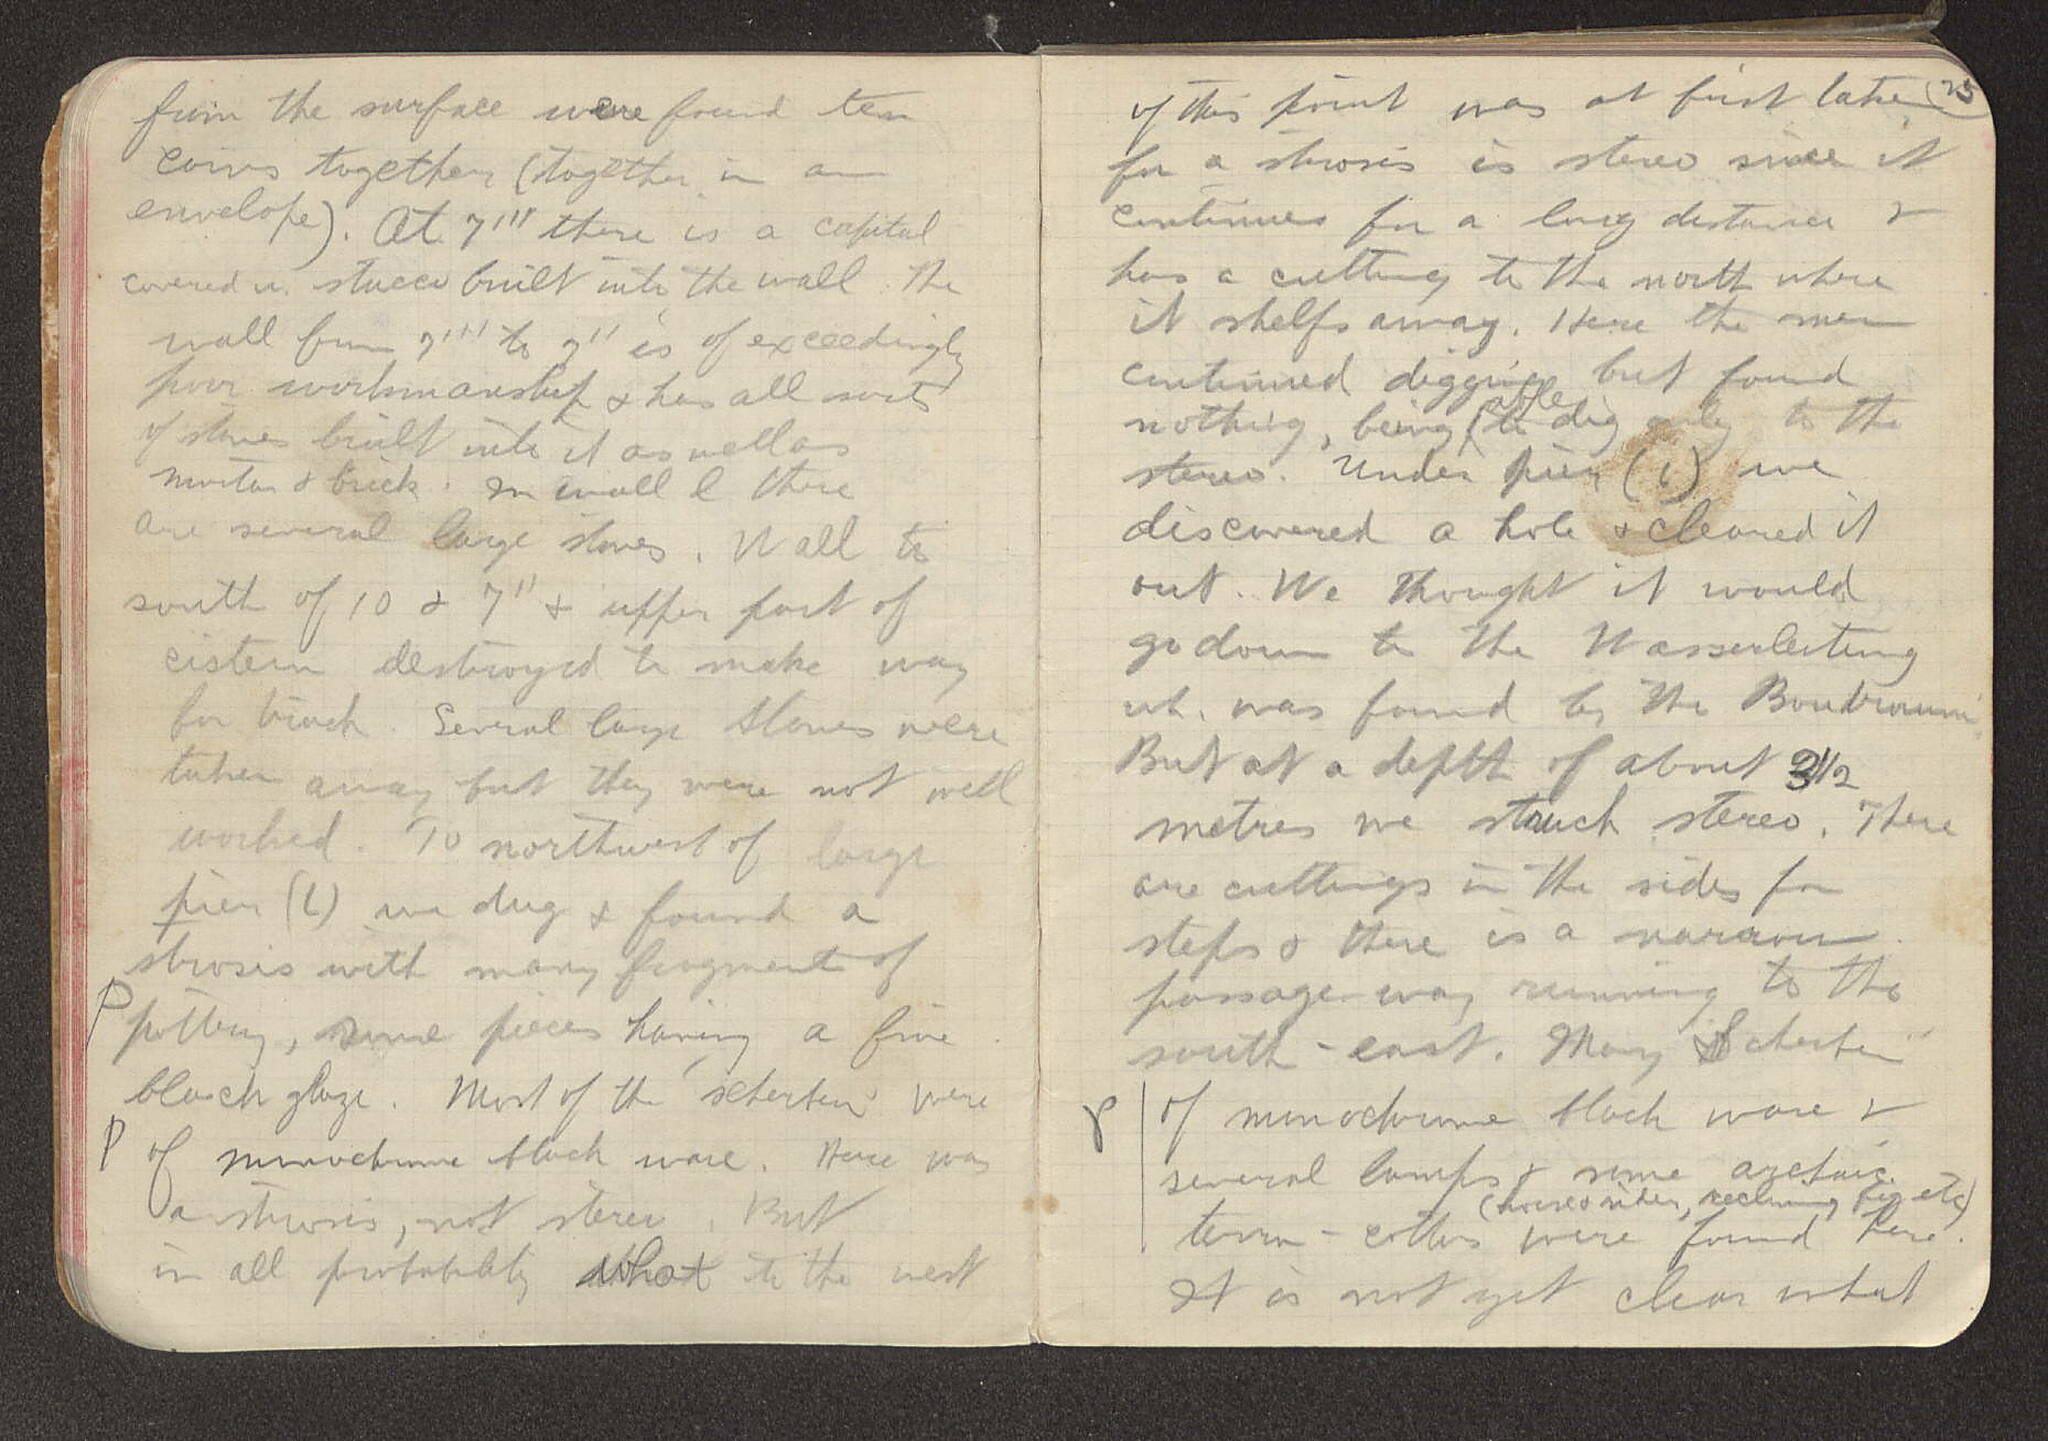 from the surface were found ten
coins together (together in an
envelope). At 7''' there is a capital
covered w. stucco built into the wall. The
wall from 7''' to 7'' is of exceedingly
poor workmanship & has all sorts
of stones built into it as well as
mortar & brick. In wall l there
are several large stones. Wall to
south of 10 & 7'' & upper part of
cistern destroyed to make way
for track. Several large stones were
taken away but they were not well
worked. To northwest of large
pier (l) we dug & found a
strosis with many fragment of
P pottery, some pieces having a fine
black glaze. Most of the "scherben" were
P of monochrome black ware. Here was
a strosis, not stereo. But
in all probability what to the west
25
of this point was at first taken
for a strosis is stereo since it
continues for a long distance &
has a cutting to the north where
it shelfs away. Here the men
continued digging but found
nothing, being able to dig only to the
stereo. Under pier (l) we
discovered a hole & cleared it
out. We thought it would
go down to the Wasserleitung
wh. was found by the Boudroumi.
But at a depth of about 3 1/2
metres we struck stereo. There
are cuttings in the sides for
steps & there is a narrow
passage way running to the
south-east. Many "Scherben"
P of monochrome black ware &
several lamps & some archaic
(horse & rider, reclining fig etc)
terra-cottas were found here.
It is not yet clear what